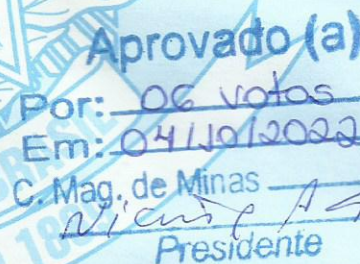 Aprovado (a)
Por: 06 votos
Em: 04/10/2022
C. Mag. de Minas
Presidente
BRASIL